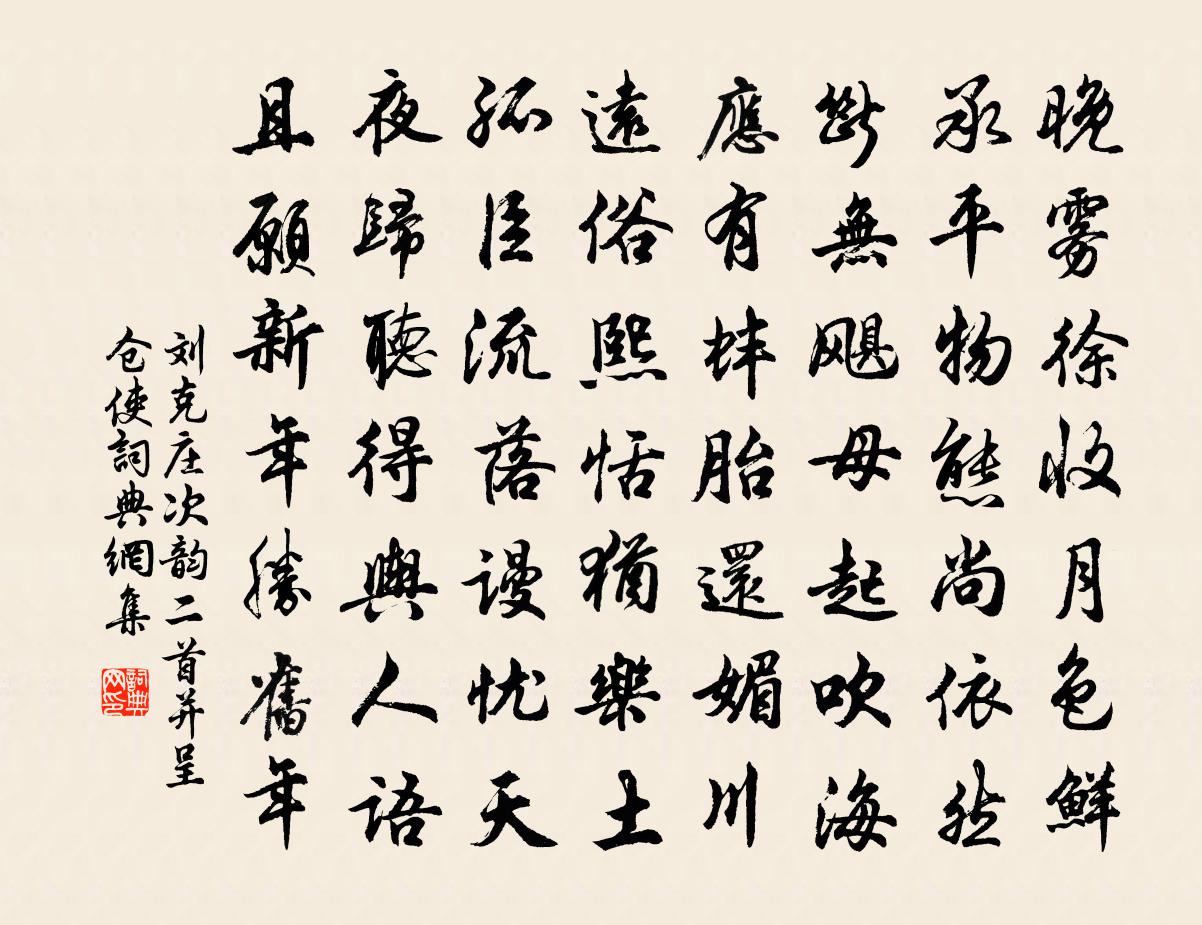 晚雾徐收月色鲜
承平物態尚依然
斷無颶母起吹海
應有蚌胎還媚川
遠俗熙恬猶樂土
孤臣流落谩忧天
夜歸聽得輿人語
且願新年勝舊年
刘克庄次韵二首并呈
仓使詞典網集